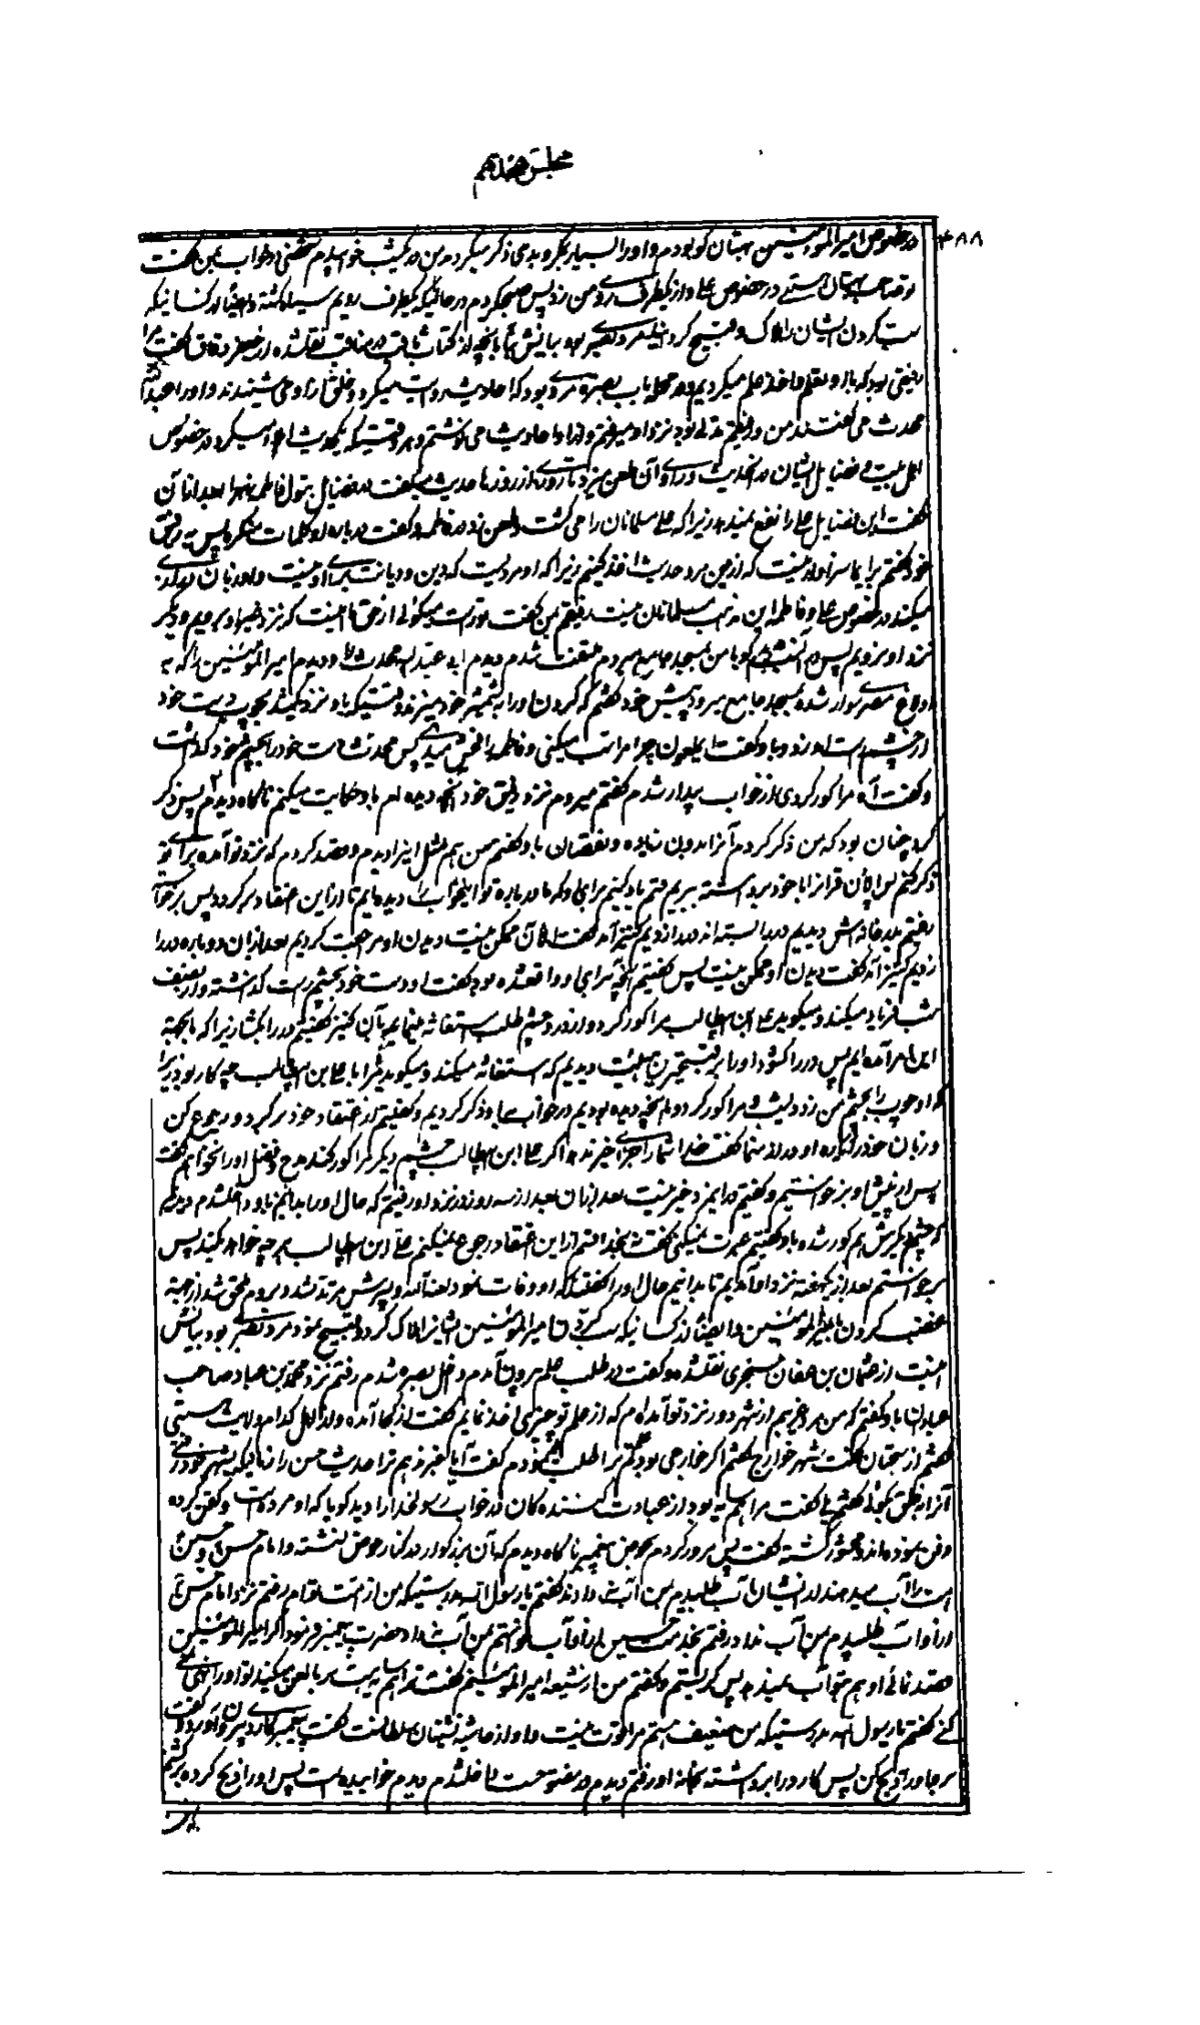 مجلس هفدهم
۴۸۸
در خصوص امیرالمؤمنین بهتان گو بودم و او را بسیار ببدی ذکر میکردم من در یکشب خوابیدم شخصی در خواب بمن گفت
تو صاحب بهتان هستی در خصوص علی و از یکطرف روی من زد پس صبح کردم در حالتیکه یکطرف رویم سیاه گشته و ایضا از کسانیکه
سب کردن ایشان را هلاک و قبیح کرد
رفیقی بود که با او تعلم و اخذ علم میکردیم و در محله باب بصره مردی بود که احادیث روایت میکرد و خلق از او می شنیدند و او را ابو عبدالله
محدث می گفتند من و رفیقم مدتی بود نزد او میرفتم و از او احادیث می نوشتم و هر وقتیکه یک حدیث املا میکرد در خصوص
اهل بیت و فضایل ایشان در آنحدیث و راوی آن طعن میزد تا روزی از روزها حدیث میگفت در فضایل بتول فاطمه زهرا بعد از آن
گفت این فضایل علی را نفع نمیدهد زیرا که علی مسلمانان را می کشت و طعن زد در فاطمه و گفت درباره او کلمات منکره پس به رفیق
خود گفتم برای ما سزاوار نیست که ازین مرد حدیث اخذ کنیم زیرا که او مردیست که دین و دیانت برای او نیست و او زبان
میکند در خصوص علی و فاطمه این مذهب مسلمانان نیست رفیقم بمن گفت تو راست میگوئی از حق ما اینست که نزد غیر او برویم و دیگر
نزد او نرویم پس در آنشب دیدم گویا من بمسجد جامع میروم ملتفت شدم دیدم ابو عبدالله محدث را و دیدم امیرالمؤمنین را که به
الاغ مصری سوار شده بمسجد جامع میرود پیش خود گفتم که گردن او را به شمشیر خود میزند وقتیکه باو نزدیک شد بچوب دست خود
از چشم راست او زد و باو گفت ای ملعون چرا مرا سب میکنی و فاطمه را فحش میدهی پس محدث دست خود را بچشم خود گذاشت
و گفت آه مرا کور کردی از خواب بیدار شدم گفتم میروم نزد رفیق خود آنچه دیده ام باو حکایت میکنم ناگاه دیدم پس ذکر
کرد چنان بود که من ذکر کردم آنرا بدون زیاده و نقصان باو گفتم من هم مثل اینرا دیدم و قصد کردم که نزد تو آمده برای تو
ذکر کنم پس الآن قرآن را با خود برداشته
رفتیم بدر خانه اش دیدیم در را بسته اند در را زدیم کنیز آمد گفت الآن ممکن نیست دیدن او مراجعت کردیم بعد از آن دوباره در را
زدیم کنیز آمد گفت دیدن او ممکن نیست پس گفتیم آنچه برای او واقع شده بود گفت او دست خود بچشم راست گذاشته و از نصف
شب فریاد میکند و میگوید علی ابن ابیطالب مرا کور کرد و از درد چشم طلب استغاثه مینماید بآن کنیز گفتیم در را بگشا زیرا که ما بجهة
این امر آمده ایم پس در را گشود او را به قبیحترین هیئت دیدیم که استغاثه میکند و میگوید مرا با علی بن ابیطالب چه کار بود زیرا
که او چوب را بچشم من زد دیشب و مرا کور کرد و ما آنچه دیده بودیم در خواب باو ذکر کردیم و گفتیم از اعتقاد خود برگرد و رجوع کن
و زبان خود را درباره او دراز منما گفت خدا شما را جزای خیر ندهد اگر علی ابن ابیطالب چشم دیگر مرا کور کند مدح و فضل او را نخواهم گفت
پس از پیش او برخواستیم و گفتیم در این مرد خیر نیست بعد از آن بعد از سه روز نزد او رفتیم که حال او را بدانیم باو داخل شدم دیدم
که چشم دیگرش هم کور شده باو گفتیم عبرت نمیکنی گفت بخدا قسم از این اعتقاد رجوع نمیکنم علی ابن ابیطالب هر چه خواهد بکند پس
برخواستم بعد از یکهفته نزد او آمدیم تا بدانیم حال او را گفتند که او وفات نمود لعنة الله و پسرش مرتد شد و بروم ملحق شد از جهة
غضب کردن بامیرالمؤمنین و ایضا از کسانیکه سب کردن امیرالمؤمنین ایشان را هلاک کرد و قبیح نمود مرد بصری بود بیانش
اینست از عثمان بن عفان سنجری نقلشده که گفت در طلب علم بیرون آمدم و داخل بصره شدم رفتم نزد محمد بن عباد صاحب
عبادان باو گفتم که من مرد غریبم از شهر دور نزد تو آمده ام که از علم تو چیزی اخذ نمایم گفت از کجا آمده و از اهل کدام ولایت هستی
گفتم از سجستان گفت شهر خوارج گفتم اگر خارجی بودم علم ترا طلب نمیکردم گفت آیا خبر ندهم ترا حدیث حسن را زمانیکه بشهر خود رفتی
آنرا بخلق بگوئی گفتم بلی گفت مرا همسایه بود از عبادت کننده گان در خواب رسولخدا را دید گویا که او مرده است و کفن کرده
دفن نموده اند و محشور گشته گفت پس مرور کردم بحوض پیغمبر ناگاه دیدم که آن بزرگوار در کنار حوض نشسته و امام حسن و حسین
امت را آب میدهند از ایشان آب طلبیدم بمن آب ندادند گفتم یا رسول الله بدرستیکه من از امت تو ام رفتم نزد امام حسن
از او آب طلبیدم بمن آب نداد رفتم بخدمت حسین از او آب خواستم بمن آب نداد حضرت پیغمبر فرمود اگر امیرالمؤمنین
قصد نمائی او هم بتو آب نمیدهد پس گریستم و گفتم من از شیعه امیرالمؤمنینم گفت ترا همسایه هست بر ما لعن میکند تو او را نهی
کنی گفتم یا رسول الله بدرستیکه من ضعیف هستم مرا قوت نیست و او از حاشیه نشینان سلطانست گفت پیغمبر کاردی بیرون آورد و گفت
برو او را ذبح کن پس کارد را برداشته بخانه او رفتم دیدم در مفتوح است داخل شدم دیدم خوابیده است پس او را ذبح کرده برگشتم